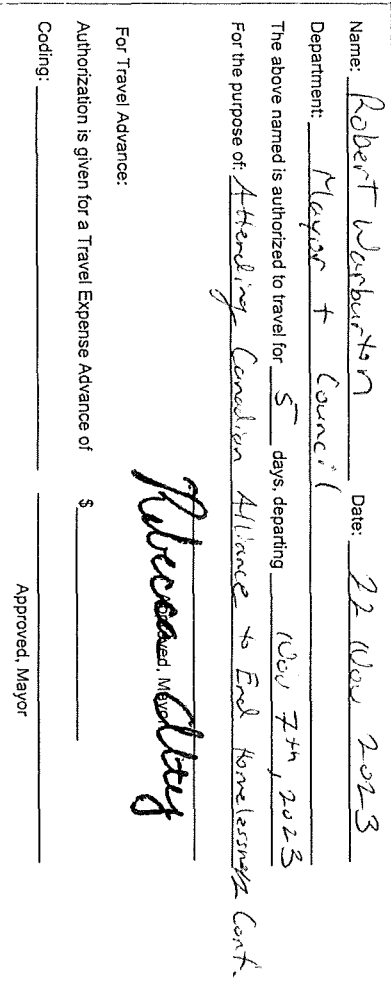 Name: Robert Warburton Date: 22 Nov 2023
Department: Mayor + Council
The above named is authorized to travel for 5 days, departing Nov 7th, 2023
For the purpose of: Attending Canadian Alliance to End Homelessness Conf.
Rebecca Alty
Approved, Mayor
For Travel Advance:
Authorization is given for a Travel Expense Advance of $
Coding:
Approved, Mayor